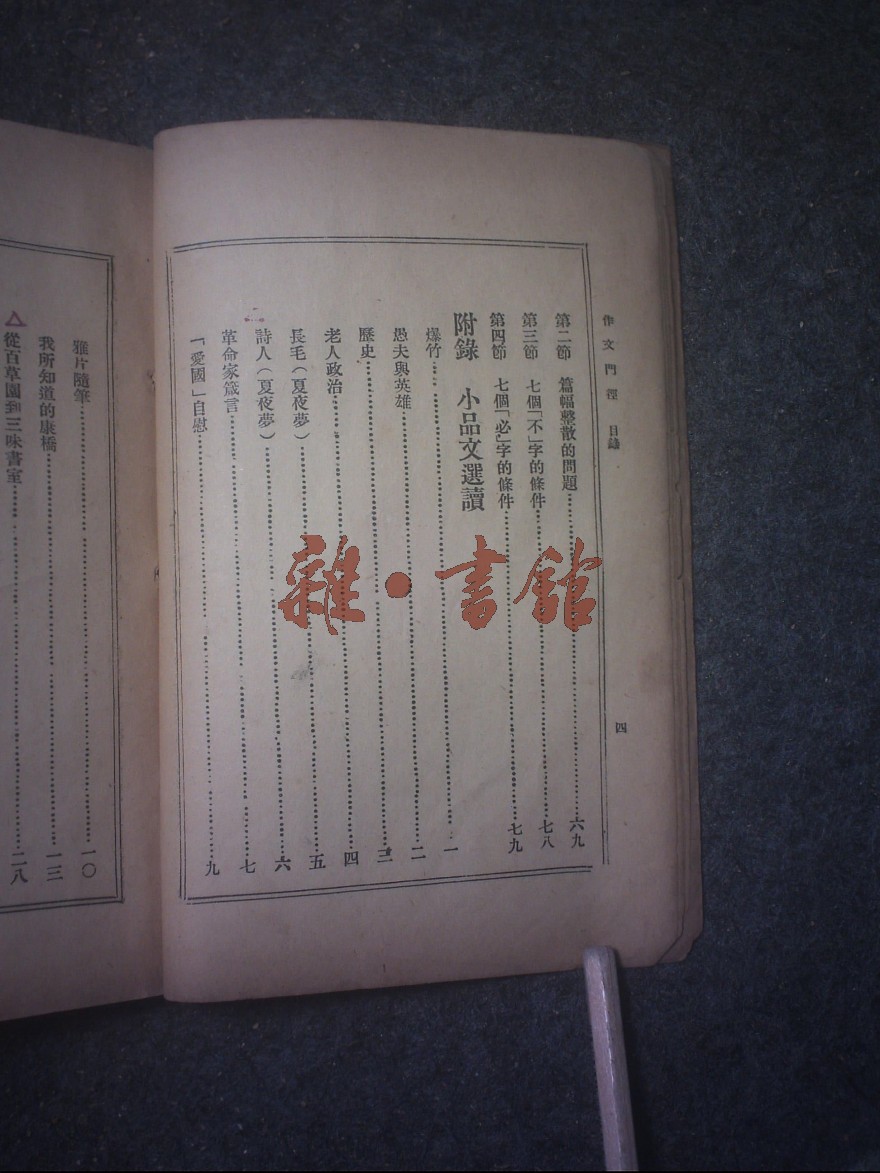 作文門徑 目錄 四
第二節 篇幅整散的問題 六九
第三節 七個「不」字的條件 七八
第四節 七個「必」字的條件 七九
附錄 小品文選讀
爆竹 一
愚夫與英雄 二
歷史 三
老人政治 四
長毛(夏夜夢) 五
詩人(夏夜夢) 六
革命家箴言 七
「愛國」自慰 九
雅片隨筆 一〇
我所知道的康橋 一三
△從百草園到三味書室 二八
雜·書館